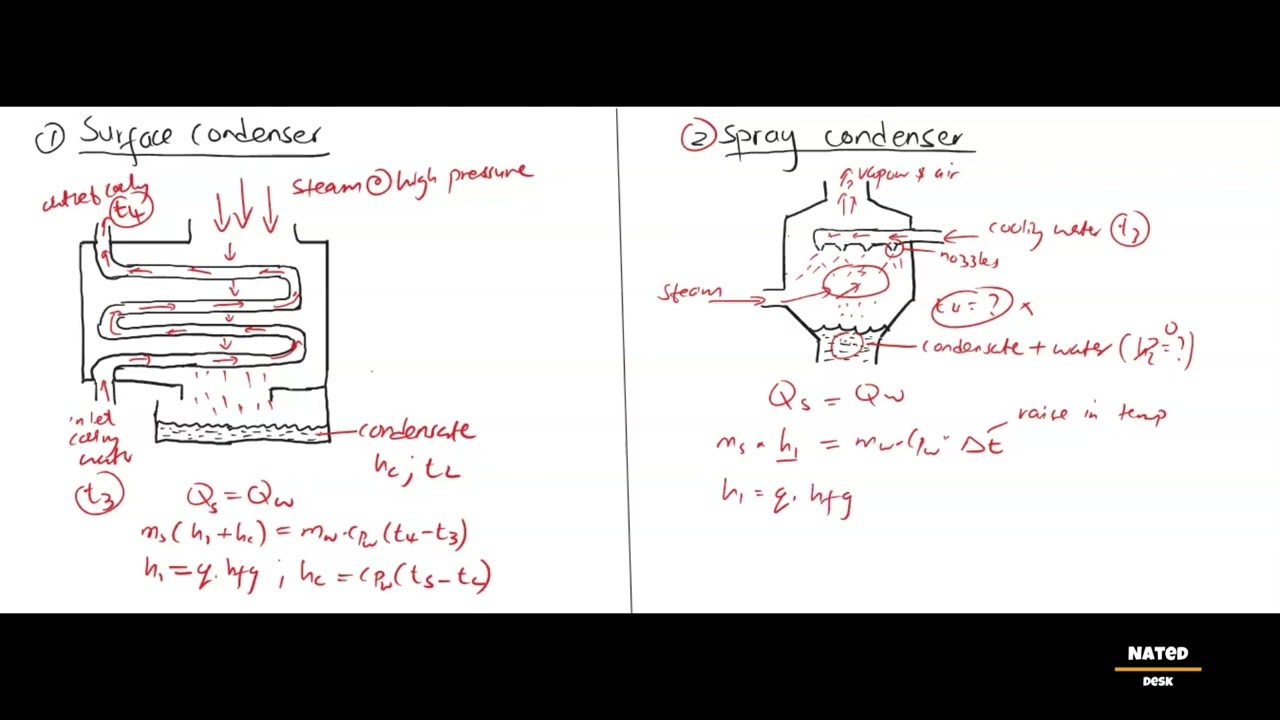 ① Surface condenser
outlet cooling
t4
steam @ high pressure
inlet
cooling
water
t3
condensate
hc ; tc
Qs = Qw
ms ( h1 + hc ) = mw · cpw ( t4 - t3 )
h1 = q. hfg ; hc = cpw ( ts - tc )
② Spray condenser
vapour & air
cooling water t3
nozzles
steam
t4 = ? ×
condensate + water ( h2 = ? )
0
Qs = Qw
raise in temp
ms · h1 = mw · cpw · Δt
h1 = q. hfg
NATED
DESK